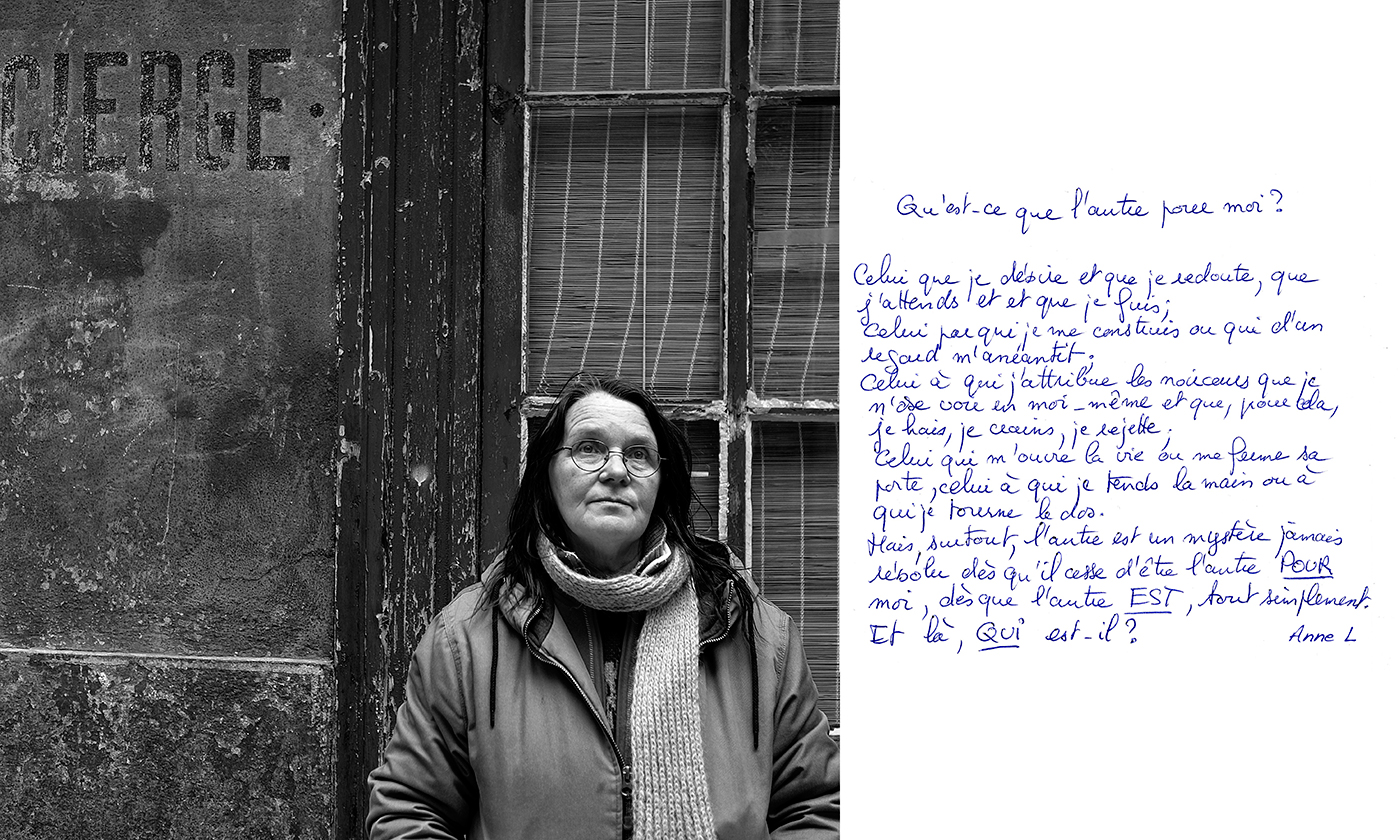 CIERGE.
Qu'est-ce que l'autre pour moi ?
Celui que je désire et que je redoute, que
j'attends et et que je fuis ;
Celui par qui je me construis ou qui d'un
regard m'anéantit ;
Celui à qui j'attribue les noirceurs que je
n'ose voir en moi-même et que, pour cela,
je hais, je crains, je rejette ;
Celui qui m'ouvre la vie ou me ferme sa
porte, celui à qui je tends la main ou à
qui je tourne le dos.
Mais, surtout, l'autre est un mystère jamais
résolu dès qu'il cesse d'être l'autre POUR
moi, dès que l'autre EST, tout simplement.
Et là, QUI est-il ?
Anne L